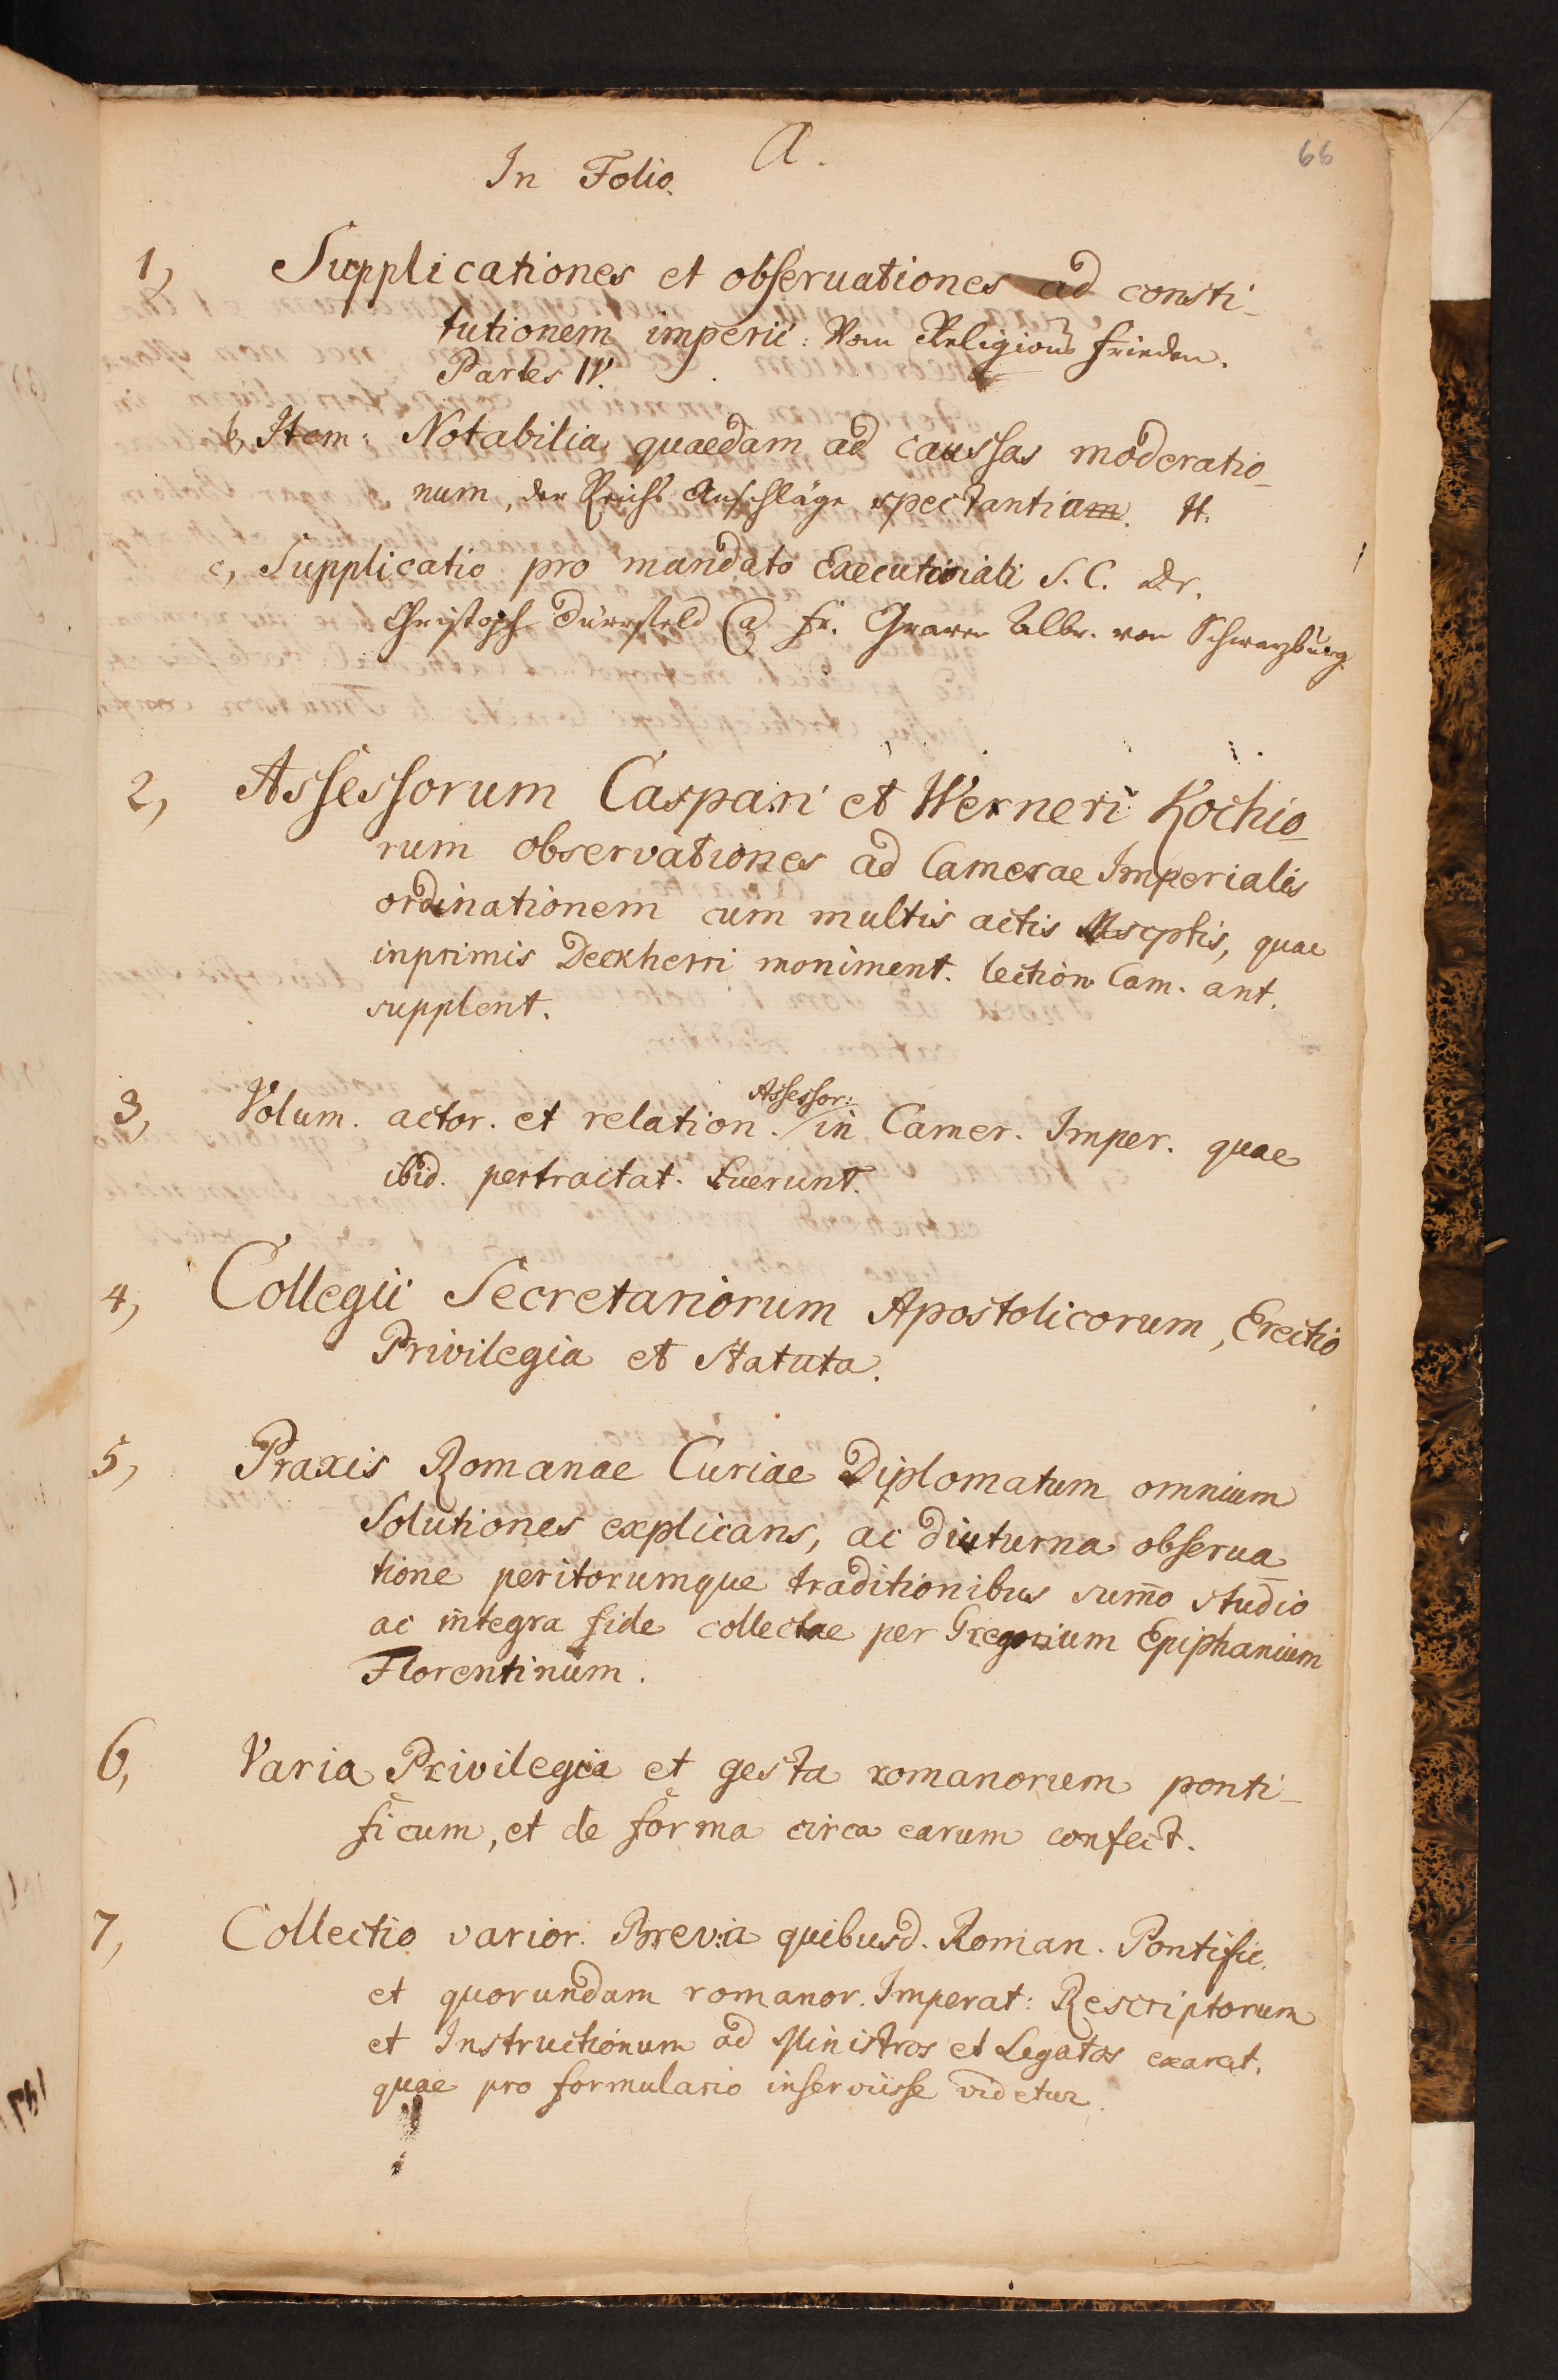 A.
66
In Folio.
1, Supplicationes et obseruationes ad consti-
tutionem imperii: Vom Religions frieden.
Partes IV.
b, Item: Notabilia quaedam ad caussas moderatio-
num, der Reichs Anschläge spectantiam. H.
c, Supplicatio pro mandato Executoriali S. C. Dr.
Christoph Dürrfeld Graven Albr. von Schwarzburg
2, Assessorum Caspari et Werneri Kochio-
rum observationes ad Camerae Imperialis
ordinationem cum multis actis Mscptis, quae
inprimis Deckherri moniment. lection Cam. ant.
supplent.
Assessor:
3, Volum. actor. et relation. in Camer. Imper. quae
ibid. pertractat. fuerunt.
4, Collegii Secretariorum Apostolicorum, Erectio
Privilegia et Statuta.
5, Praxis Romanae Curiae Diplomatum omnium
Solutiones explicans, ac diuturna obserua-
tione peritorumque traditionibus sum̄o studio
ac integra fide collectae per Gregorium Epiphanium
Florentinum.
6, Varia Privilegia et gesta romanorum ponti-
ficum, et de forma circa earum confect.
7, Collectio varior. Brevia quibusd. Roman. Pontific.
et quorundam romanor. Imperat: Rescriptorum
et Instructionum ad Ministros et Legatos exarat.
quae pro formulario inserviisse videtur.